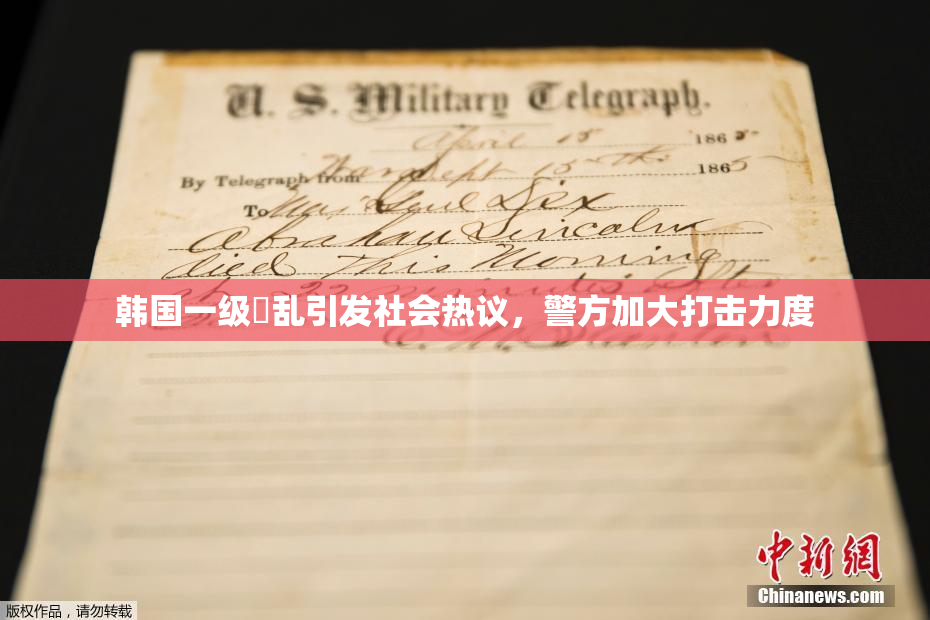 U. S. Military Telegraph.
April 15 1865.
By Telegraph from War Dept 15th 1865
To Maj Genl Dix
Abraham Lincoln
died This Morning
at 22 minutes after
韩国一级乱引发社会热议，警方加大打击力度
中新网
Chinanews.com
版权作品，请勿转载